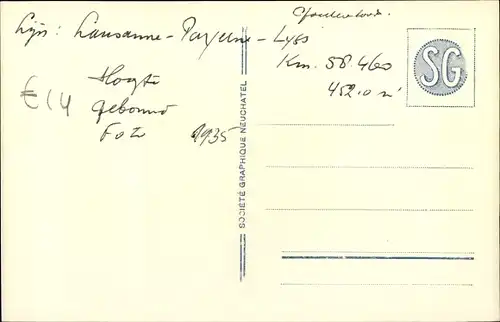 Lijn: Lausanne - Payerne - Lyss
Km. 58.460
452.0 m
Hoogte
gebouw
Foto 1935
€ 14
SG
SOCIÉTÉ GRAPHIQUE NEUCHATEL